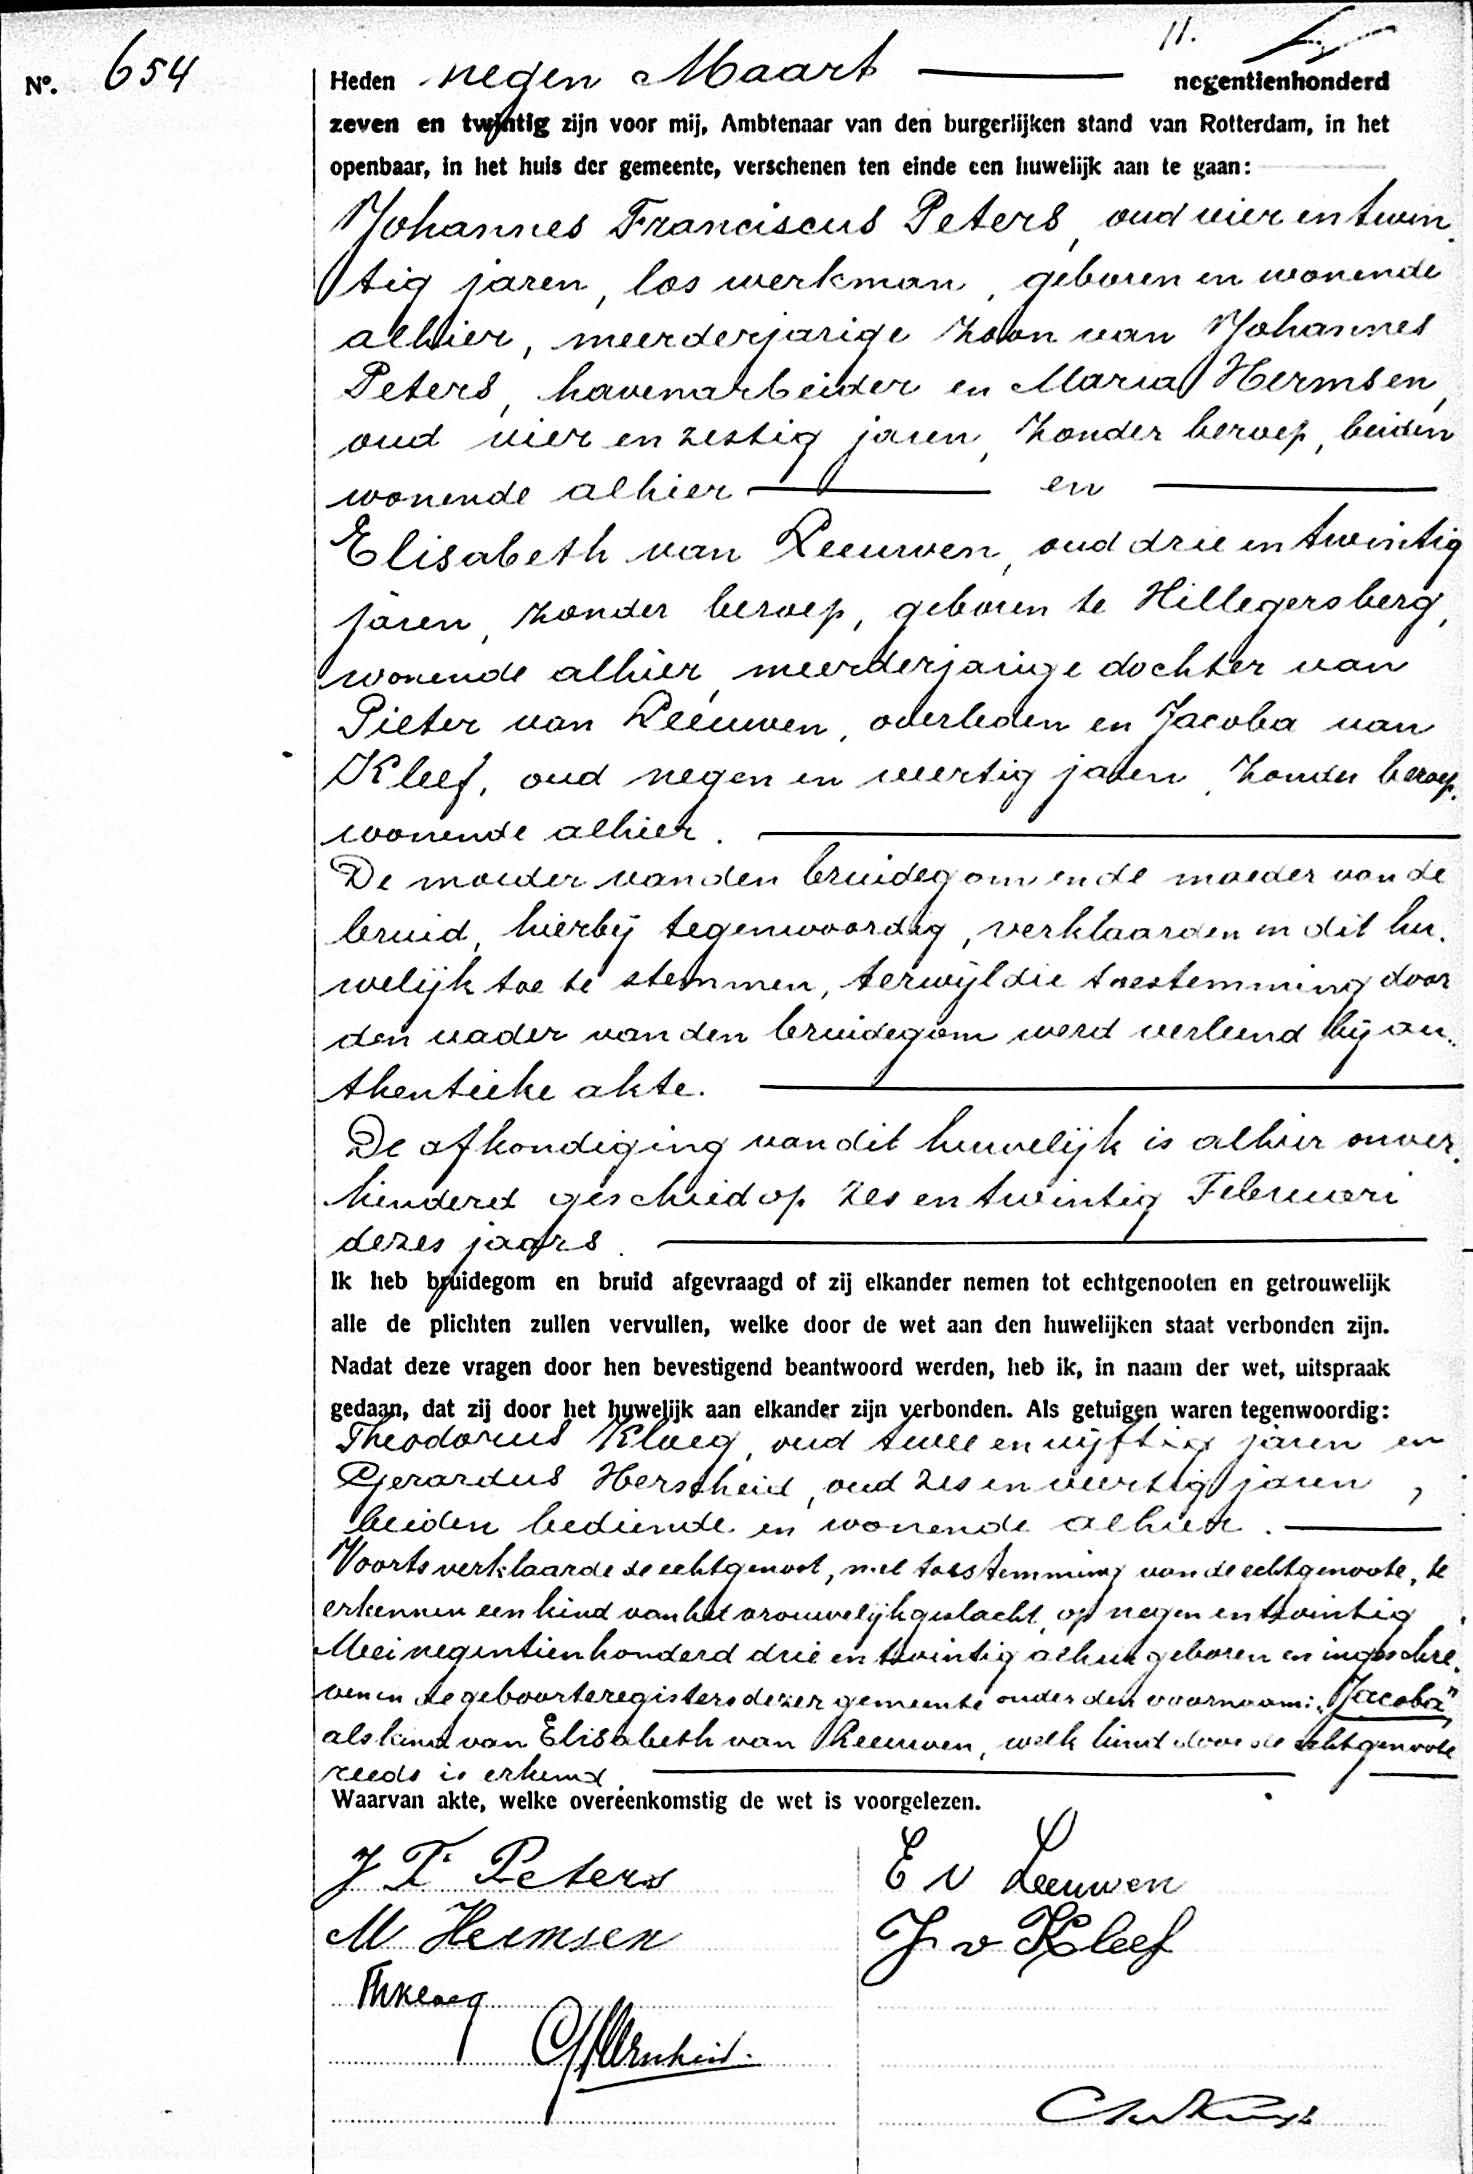 11.
No. 654
Heden negen Maart negentienhonderd
zeven en twintig zijn voor mij, Ambtenaar van den burgerlijken stand van Rotterdam, in het
openbaar, in het huis der gemeente, verschenen ten einde een huwelijk aan te gaan:
Johannes Franciscus Peters, oud vier en twin-
tig jaren, los werkman, geboren en wonende
alhier, meerderjarige zoon van Johannes
Peters, havenarbeider en Maria Hermsen,
oud vier en zestig jaren, zonder beroep, beiden
wonende alhier en
Elisabeth van Leeuwen, oud drie en twintig
jaren, zonder beroep, geboren te Hillegersberg,
wonende alhier, meerderjarige dochter van
Pieter van Leeuwen, overleden en Jacoba van
Kleef, oud negen en veertig jaren, zonder beroep,
wonende alhier.
De moeder van den bruidegom en de moeder van de
bruid, hierbij tegenwoordig, verklaarden in dit hu-
welijk toe te stemmen, terwijl die toestemming door
den vader van den bruidegom werd verleend bij au-
thentieke akte.
De afkondiging van dit huwelijk is alhier onver-
hinderd geschied op zes en twintig Februari
dezes jaars.
Ik heb bruidegom en bruid afgevraagd of zij elkander nemen tot echtgenooten en getrouwelijk
alle de plichten zullen vervullen, welke door de wet aan den huwelijken staat verbonden zijn.
Nadat deze vragen door hen bevestigend beantwoord werden, heb ik, in naam der wet, uitspraak
gedaan, dat zij door het huwelijk aan elkander zijn verbonden. Als getuigen waren tegenwoordig:
Theodorus Kloeg, oud twee en vijftig jaren en
Gerardus Herscheid, oud zes en veertig jaren,
beiden bediende en wonende alhier.
Voorts verklaarde de echtgenoot, met toestemming van de echtgenoote, te
erkennen een kind van het vrouwelijk geslacht, op negen en twintig
Mei negentienhonderd drie en twintig alhier geboren en ingeschre-
ven in de geboorteregisters dezer gemeente onder den voornaam: "Jacoba",
als kind van Elisabeth van Leeuwen, welk kind door de echtgenoote
reeds is erkend.
Waarvan akte, welke overeenkomstig de wet is voorgelezen.
J F Peters
E v Leeuwen
M Hermsen
J v Kleef
Th Kloeg